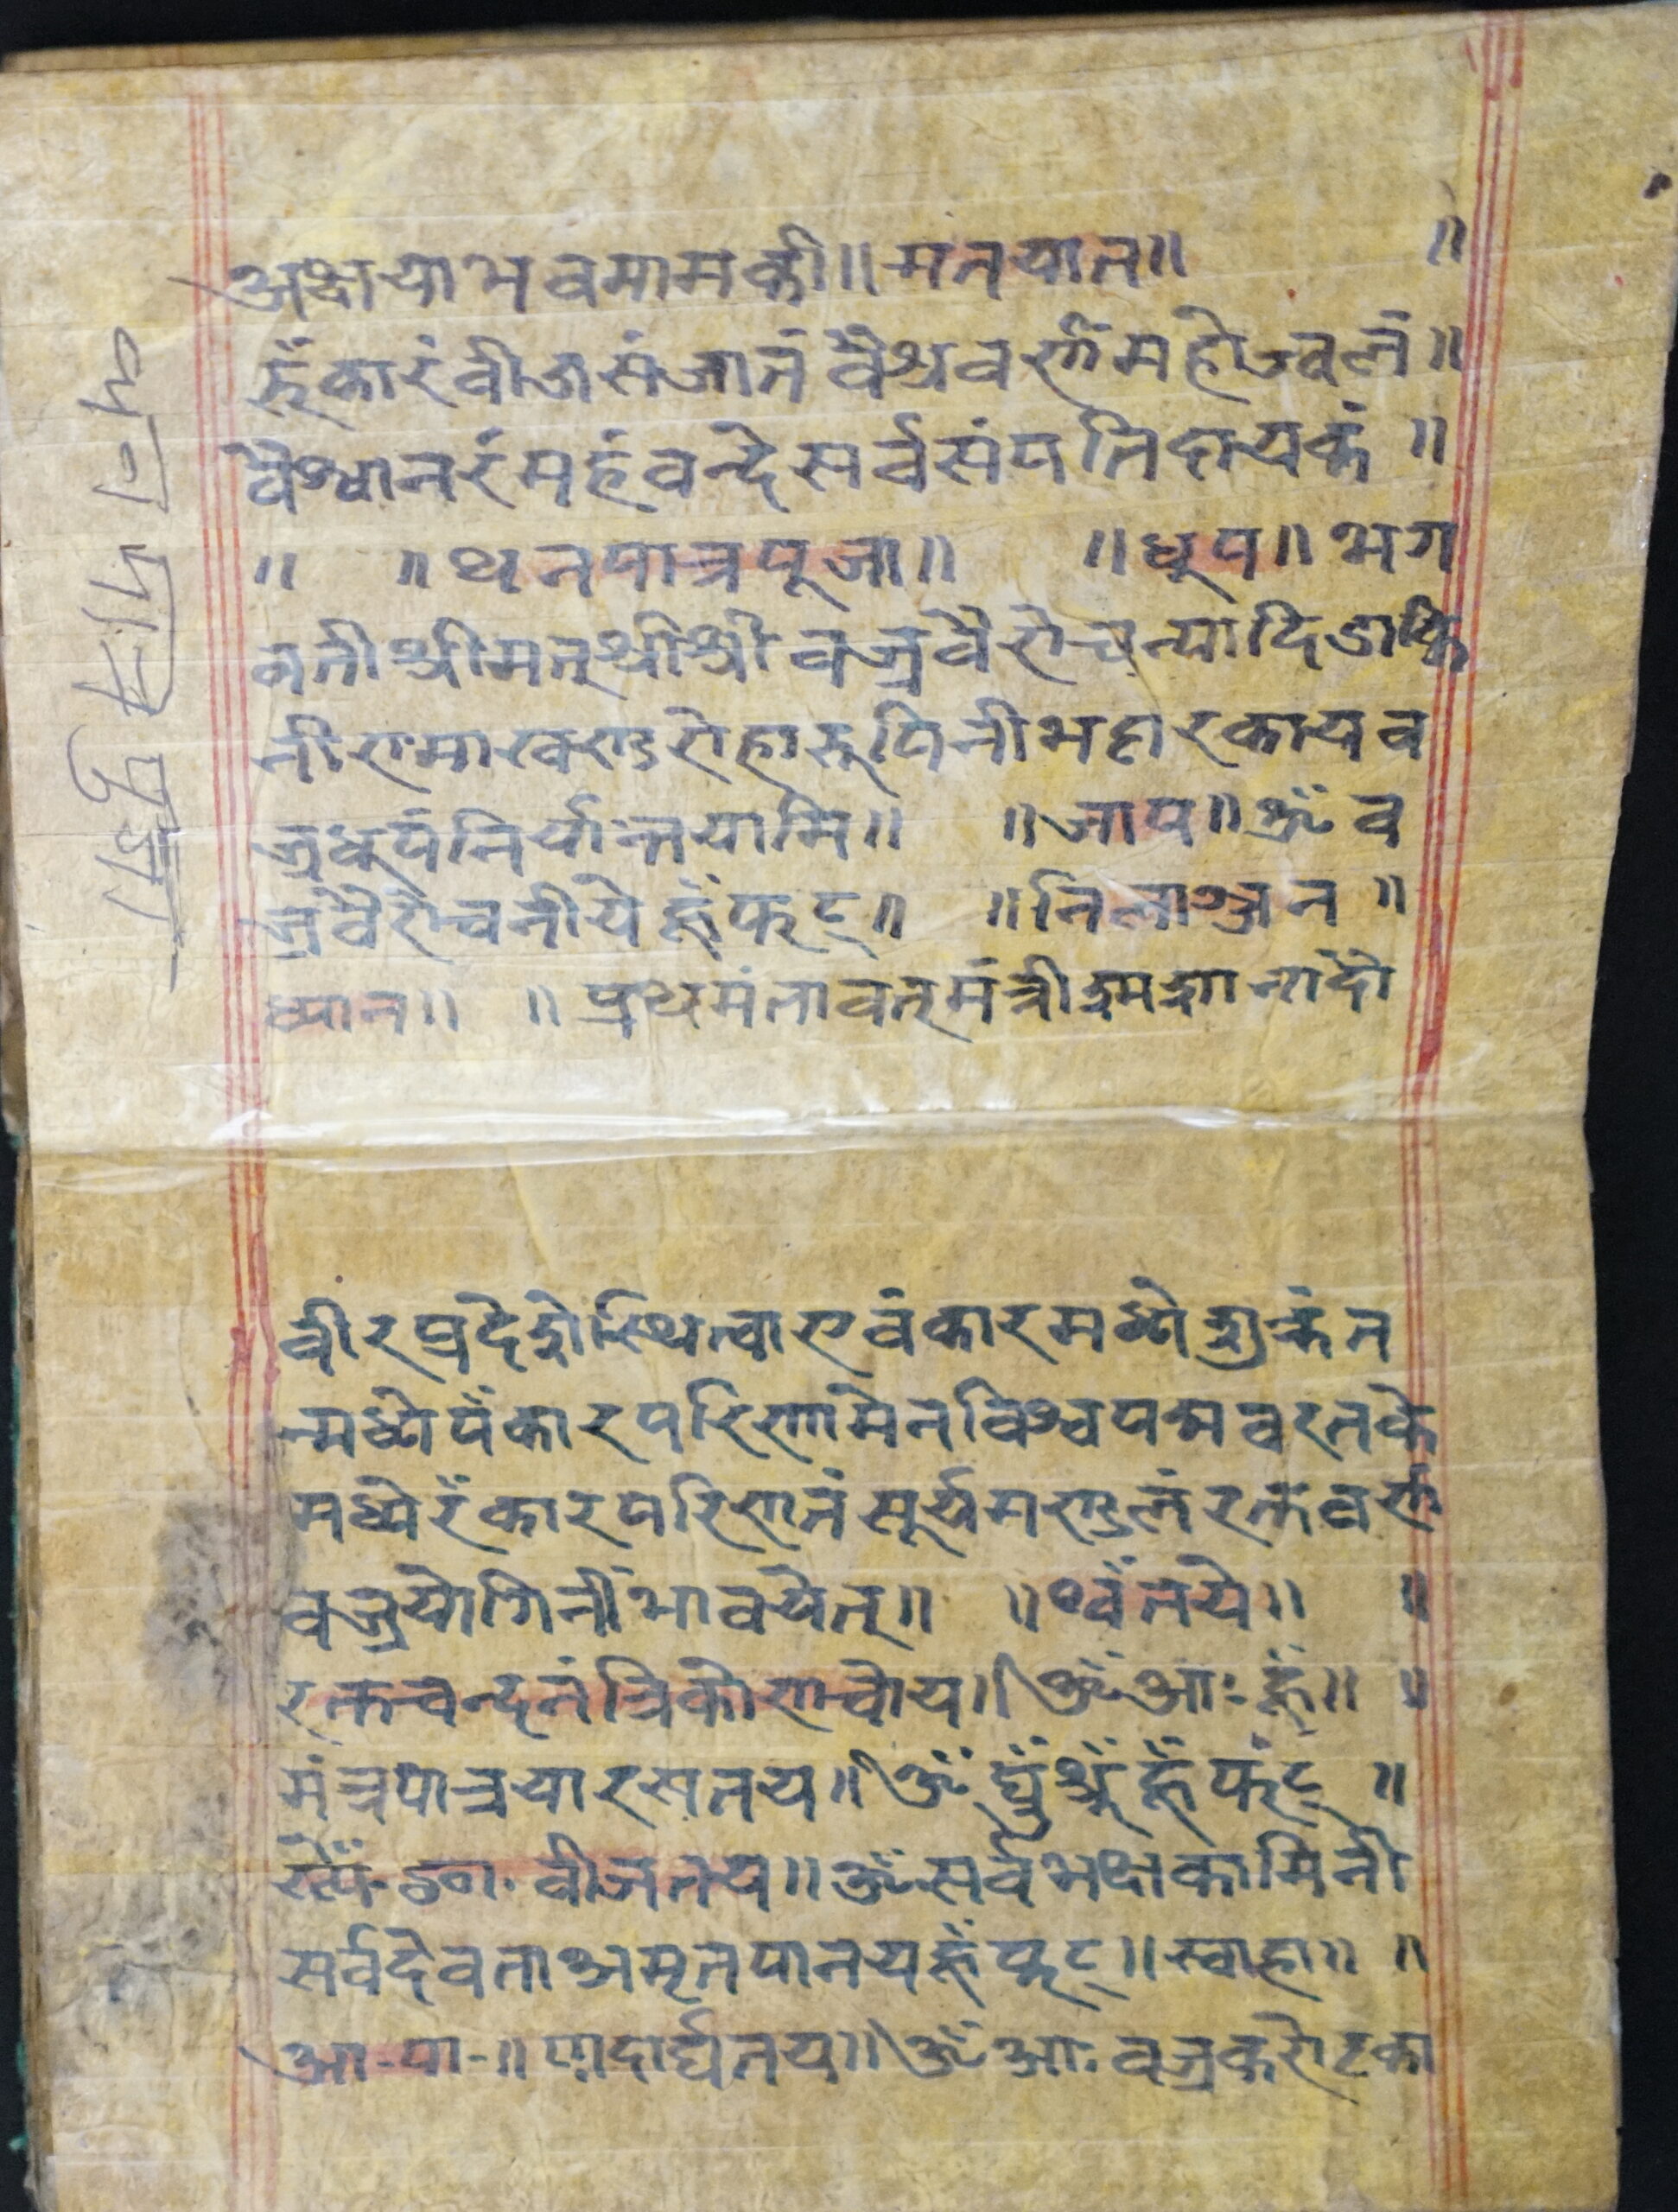 अक्षायाभवमामकी॥मतयात॥ ॥
हुँकारंवीजसंजातंवैश्रवर्णंमहोज्वलं॥
वैश्वानरंमहंवन्देसर्वसंपतिदायकं॥
॥ ॥थनपात्रपूजा॥ ॥धूप॥भग
वतीश्रीमत्श्रीश्रीवज्रवैरोचन्यादिडाकि
नीरामाखण्डरोहारुपिनीभट्टारकायव
ज्रधूपंनिर्यान्तयामि॥ ॥जाप॥ॐव
ज्रवैरोचनीयेहूँफट्॥ ॥निलाञ्जन॥
ध्यान॥ ॥प्रथमंतावत्मंत्रीश्मशानादौ
वीरप्रदेशेस्थित्वाएवंकारमध्येशुक्तंत
न्मध्येपँकारपरिणामेनविश्वपद्मवरतके
मध्येरँकारपरिणतंसूर्यमण्डलंरक्तवर्ण
वज्रयोगिनींभावयेत्॥ ॥थ्वँतये॥ ॥
रक्तचन्दनंत्रिकोणच्वोय॥ॐआःहूँ॥ ॥
मंत्रपात्रयारसतय॥ हूँफँट्॥
वीजतय॥ॐसर्वभक्षकामिनी
सर्वदेवताअमृतपानयहूँफट्॥स्वाहा॥ ॥
आ-पा-॥पादार्घतय॥ॐआःवज्रकरोटका